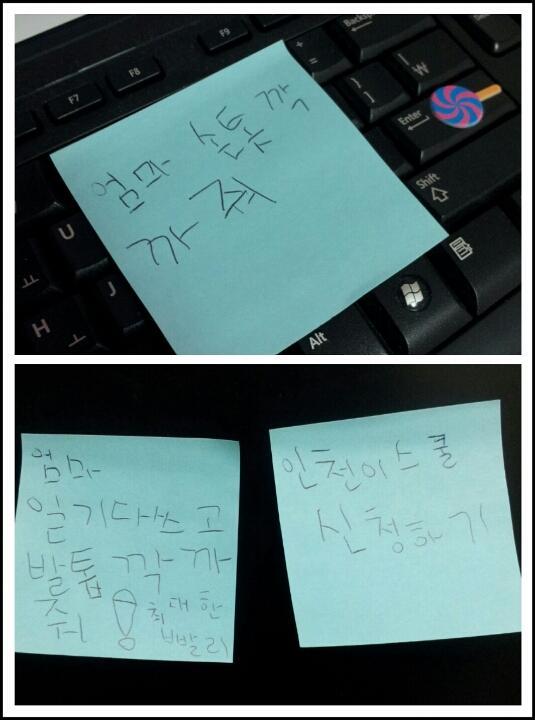 F7
F8
F9
Backsp
+
=
|
₩
}
]
Enter
Shift
U
ㅛ
J
H
ㅗ
Alt
엄마 손톱 깍
까 줘
엄마
일기다쓰고
발톱 깍까
줘 ! 최대한
빨리
인천이스쿨
신청하기